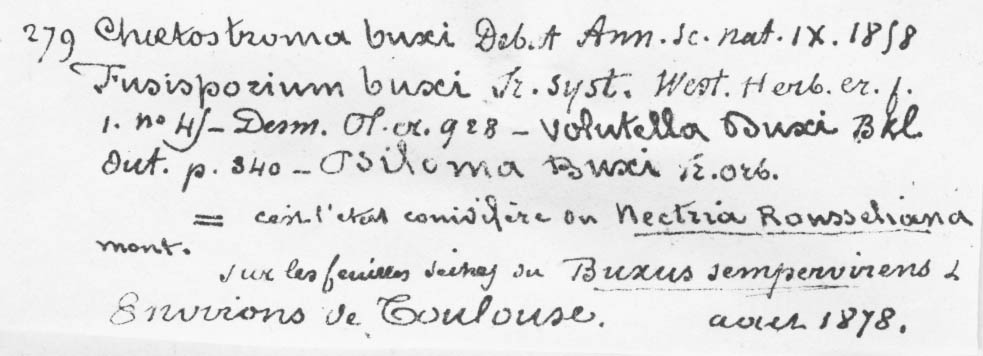 279 Chætostroma buxi Deb.t Ann. sc. nat. IX. 1858
Fusisporium buxi Fr. syst. West. Herb. cr. f.
1. no 45 – Desm. Pl. cr. 928 – Volutella Buxi Bkl.
Out. p. 340 – Psiloma Buxi Fr. orb.
= c'est l'état conidifère du Nectria Rousseliana
mont.
sur les feuilles sèches du Buxus sempervirens L
Environs de Toulouse. aout 1878.